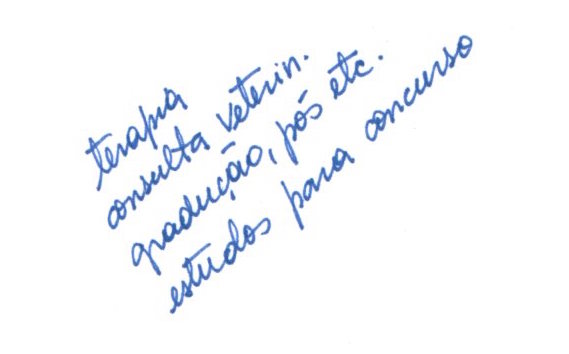 terapia
consulta veterin.
gradução, pós etc.
estudos para concurso